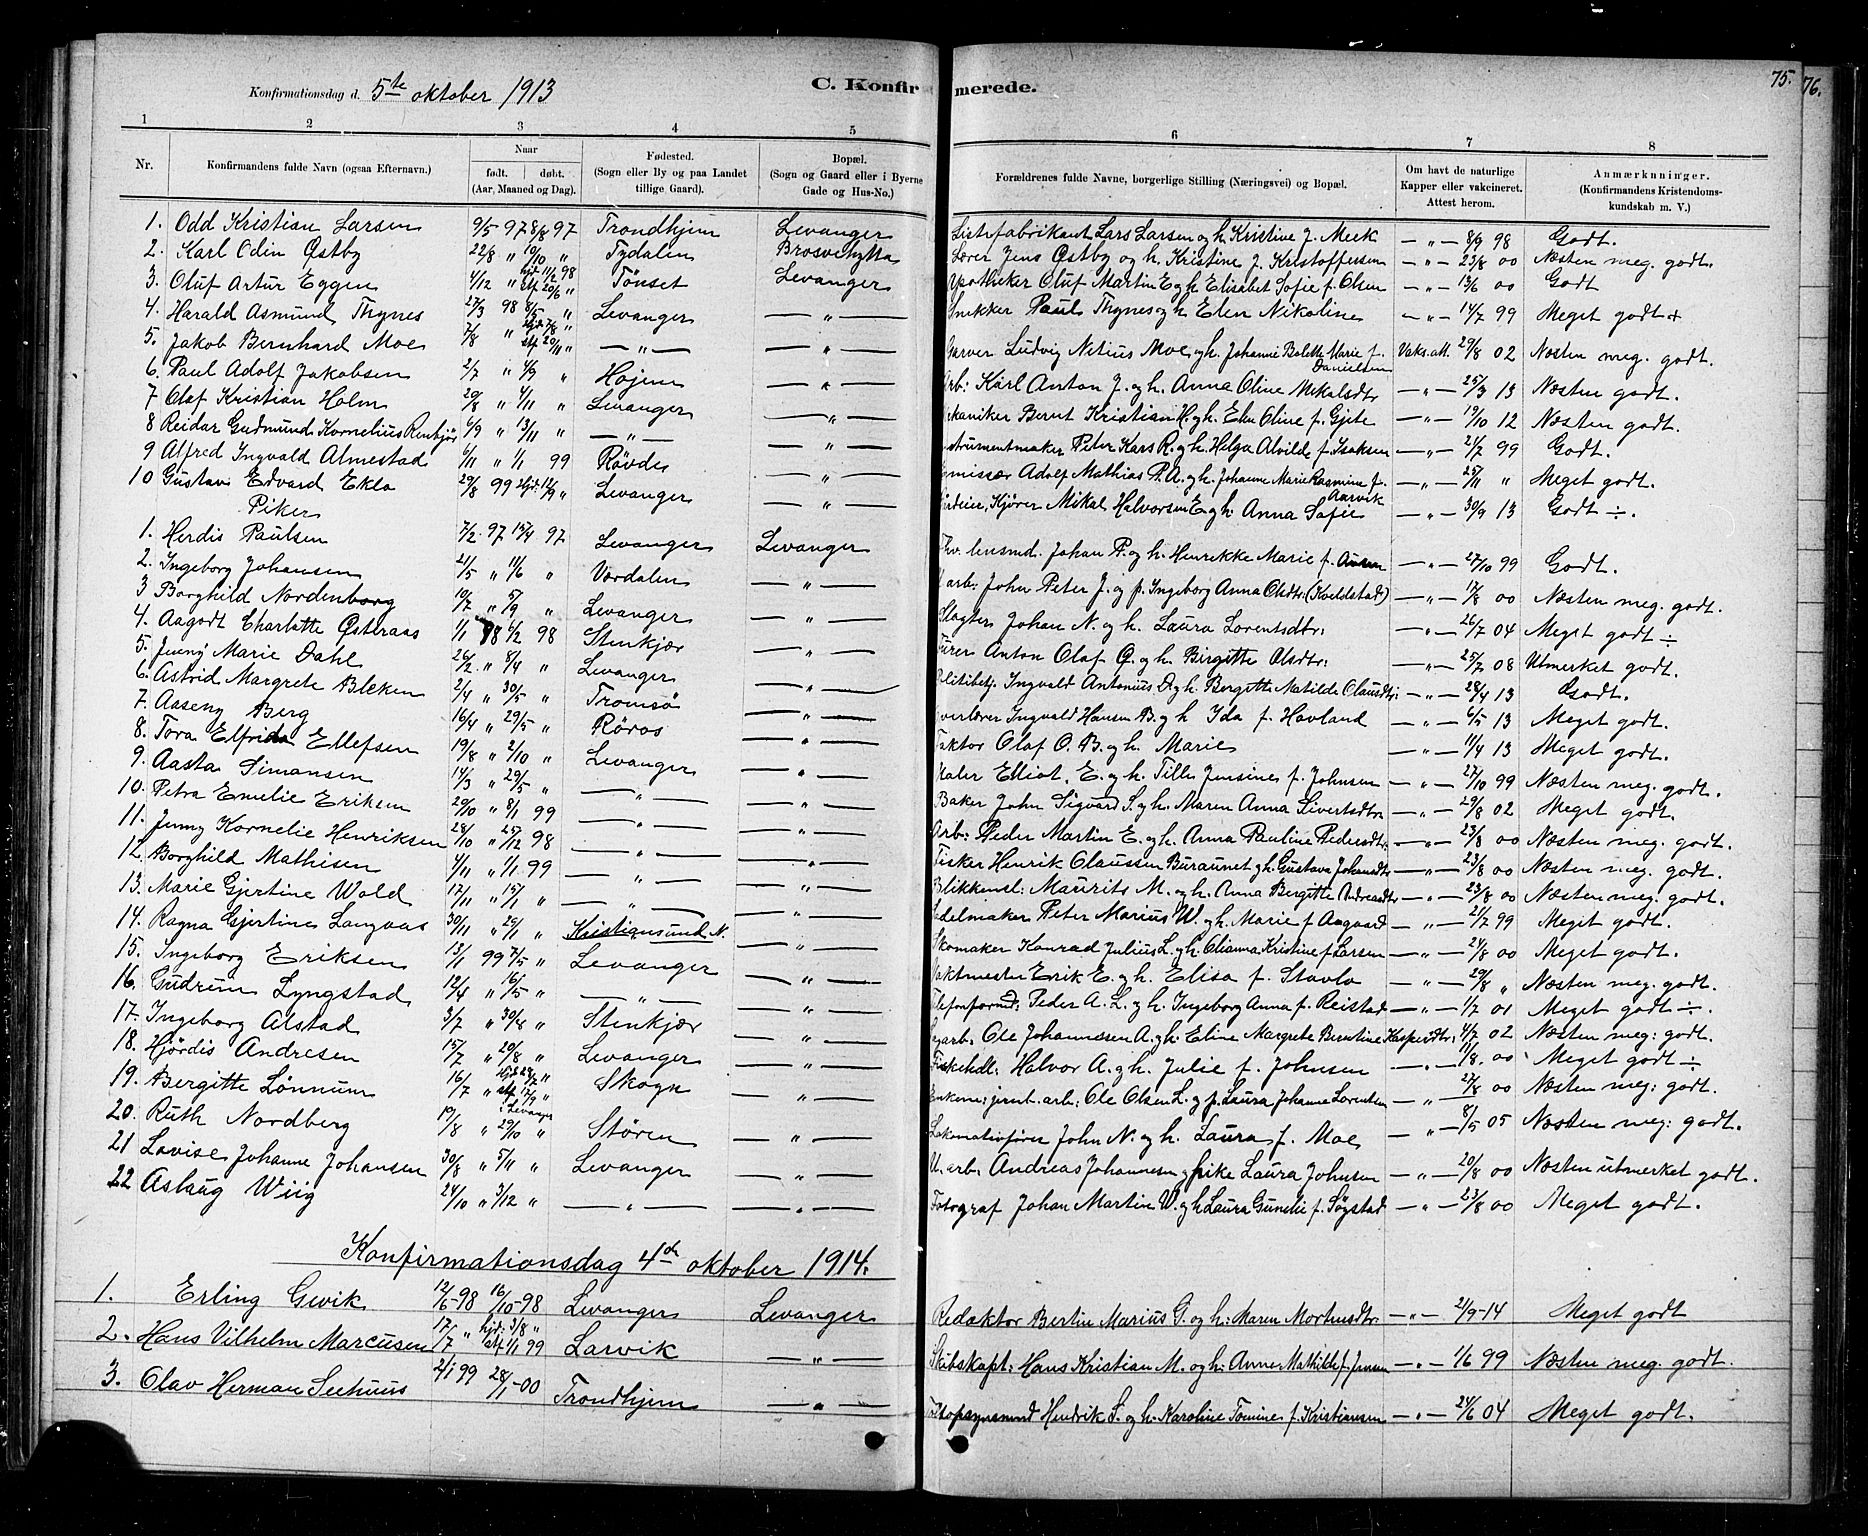 75. 76.
Konfirmationsdag d. 5te oktober 1913 C. Konfirmerede.
1 2 3 4 5 6 7 8
Nr. Konfirmandens fulde Navn (ogsaa Efternavn). Naar født. døbt. (Aar, Maaned og Dag). Fødested. (Sogn eller By og paa Landet tillige Gaard). Bopæl. (Sogn og Gaard eller i Byerne Gade og Hus-No.) Forældrenes fulde Navne, borgerlige Stilling (Næringsvei) og Bopæl. Om havt de naturlige Kapper eller vakcineret. Attest herom. Anmærkninger. (Konfirmandens Kristendomskundskab m. V.)
1. Odd Kristian Larsen 9/5 97 8/8 97 Trondhjem Levanger Listefabrikant Lars Larsen og h. Kristine f. Meek — „ — 8/9 98 Godt.
2. Karl Odin Østby 22/8 „ 10/10 „ Tydalen Brosvehytta Lærer Jens Østby og h. Kristine f. Kristoffersen — „ — 23/8 00 Næsten meg. godt.
3. Oluf Artur Eggen 4/12 „ hjd. 11/2 98 stf. 20/6 „ Tønset Levanger Apotheker Oluf Martin E og h Elisabet Sofie f. Olsen — „ — 13/6 00 Godt
4. Harald Asmund Thynes 27/3 98 8/5 „ Levanger — „ — Snekker Paul Thynes og h Elen Nikoline — „ — 14/7 99 Meget godt +
5. Jakob Bernhard Moe 7/8 „ hjd. 7/8 „ stf 20/11 „ — „ — — „ — Garver Ludvig Netius Moe og h. Johanne Bolette Marie f. Danielsen Vaks. att. 29/8 02 Næsten meg. godt.
6. Paul Adolf Jakobsen 2/7 „ 4/9 „ Højem — „ — Arb: Karl Anton J. og h. Anna Oline Mikalsdtr — „ — 25/3 13 Næsten godt.
7 Olaf Kristian Holm 20/8 „ 4/11 „ Levanger — „ — Mekaniker Bernt Kristian H. og h. Elen Oline f. Gjete — „ — 19/10 12 Næsten godt.
8 Reidar Gudmund Kornelius Renkjør 6/9 „ 13/11 „ — „ — — „ — Instrumentmaker Peter Kars R. og h. Helga Alvilde f. Isaksen — „ — 21/7 99 Godt.
9 Alfred Ingvald Almestad 6/11 „ 1/1 99 Røvde — „ — Emissær Adolf Mathias P. A. og h. Johanne Marie Rasmine f. Aarvik — „ — 25/11 „ Meget godt.
10 Gustav Edvard Eklo 29/8 99 hjd: 12/9 „ Levanger — „ — Gårdeier, Kjører Mikal Halvorsen E og h. Anna Sofie — „ — 30/9 13 Godt ÷.
Piker
1. Herdis Paulsen 7/2 97 15/4 97 Levanger Levanger Fhv. lensmd. Johan P. og h. Henrikke Marie f. — „ — 27/10 99 Godt.
2. Ingeborg Johansen 21/5 „ 11/6 „ Værdalen — „ — arb: John Peter J. og p. Ingeborg Anna Olsdtr. (Kveldstad) — „ — 17/8 00 Næsten meg. godt.
3 Borghild Nordenborg 10/7 „ 5/9 „ Levanger — „ — Slagter Johan N. og h. Laura Lorentsdtr: — „ — 26/7 04 Meget godt ÷
4. Aagodt Charlotte Østeraas 1/1 98 6/2 98 Stenkjær — „ — Furer Anton Olaf Ø. og h. Birgitte Olsdtr: — „ — 25/7 08 Utmerket godt.
5. Jenny Marie Dahl 26/2 „ 8/4 „ Levanger — „ — Politibetj. Ingvald Antonius D. og h. Bergitte Matilde Olausdtr: — „ — 28/4 13 Godt.
6. Astrid Margrete Bleken 2/4 „ 30/5 „ Tromsø — „ — Overlærer Ingvald Hansen B. og h Ida f. Havland — „ — 6/5 13 Meget godt.
7. Aaseny Berg 16/4 „ 29/5 „ Røros — „ — Faktor Olaf O. B. og h. Marie — „ — 11/4 13 Meget godt.
8. Tora Elfrida Ellefsen 19/8 „ 2/10 „ Levanger — „ — Maler Elliot. E. og h. Tilla Jensine f. Johnsen — „ — 27/10 99 Næsten meg. godt.
9. Aasta Simonsen 14/3 „ 29/5 „ — „ — — „ — Baker John Sigvard S. og h. Maren Anna Sivertsdtr — „ — 29/8 02 Meget godt.
10. Petra Emelie Eriksen 29/10 „ 8/1 99 — „ — — „ — Arb: Peder Martin E. og h. Anna Pauline Pedersdtr. — „ — 23/8 00 Næsten meg. godt.
11. Jenny Kornelie Henriksen 28/10 „ 25/12 98 — „ — — „ — Fisker Henrik Claussen Buraunet og h. Gustava Johansdtr — „ — 23/8 00 Næsten meg. godt.
12. Borghild Mathisen 4/11 „ 1/1 99 — „ — — „ — Blikkensl: Maurits M. og h. Anna Bergitte Andreasdtr — „ — 23/8 00 Næsten meg. godt.
13. Marie Gjertine Wold 17/11 „ 15/1 „ — „ — — „ — Sadelmaker Peter Marius W. og h. Marie f Aagaard — „ — 21/7 99 Meget godt.
14. Ragna Gjertine Langaas 30/11 „ 26/1 „ Kristiansund N. — „ — Skomaker Konrad Julius L. og h. Olianna Kristine f Larsen — „ — 24/8 00 Meget godt.
15. Ingeborg Eriksen 13/1 99 7/5 „ Levanger — „ — Vaktmester Erik E. og h. Elisa f. Stavlo — „ — 29/8 „ Næsten meg. godt.
16. Gudrun Lyngstad 12/4 „ 16/5 „ — „ — — „ — Tlefonformd: Peder A. L. og h. Ingeborg Anna f. Reistad — „ — 1/7 01 Meget godt ÷.
17. Ingeborg Alstad 3/7 „ 30/4 „ Stenkjær — „ — arb: Ole Johannesen A. og h. Eline Margrete Berntine Kaspersdtr: 4/7 02 Næsten meg: godt.
18. Hjørdis Andresen 15/7 „ 20/8 „ Levanger — „ — Fiskehdl: Halvor A. og h. Julie f. Johnsen — „ — 11/8. 00 Meget godt ÷
19. Bergitte Lønnum 16/7 „ hjd 24/7 „ stf 17/9 „ i Levanger Skogn — „ — Enkem: jernb. arb: Ole Olsen L. og p. Laura Johanne Lorentsen — „ — 27/8 00 Næsten meg: godt.
20. Ruth Nordberg 19/8 „ 29/10 „ Støren — „ — Lokomotivfører John N. og h. Laura f. Moe — „ — 8/5 05 Næsten meg: godt.
21 Lovise Johanne Johansen 30/8 „ 5/11 „ Levanger — „ — U. arb: Andreas Johannesen og pike Laura Johnsen — „ — 20/8 00 Næsten utmerket godt.
22 Aslaug Wiig 24/10 „ 3/12 „ — „ — — „ — Fotograf Johan Martin W. og h Laura Gunelie f. Søgstad — „ — 23/8 00 Meget godt.
Konfirmationsdag 4de oktober 1914.
1. Erling Gevik 12/6-98 16/10-98 Levanger Levanger Redaktør Bertin Marius G. og h: Maren Mortensdtr. — „ — 2/9-14 Meget godt
2. Hans Vilhelm Marcusen 17/7 „ hjd: 3/8 „ stf 1/1 99 Larvik — „ — Skibskapt: Hans Kristian M. og h: Anne Mathilde f. Jensen — „ — 1/6 99 Næsten meg. godt.
3. Olav Herman Seehuus 2/1 99 28/1-00 Trondhjem — „ — Hendrik S. og h. Karoline Tomine f. Kristiansen — „ — 24/6 04 Meget godt.